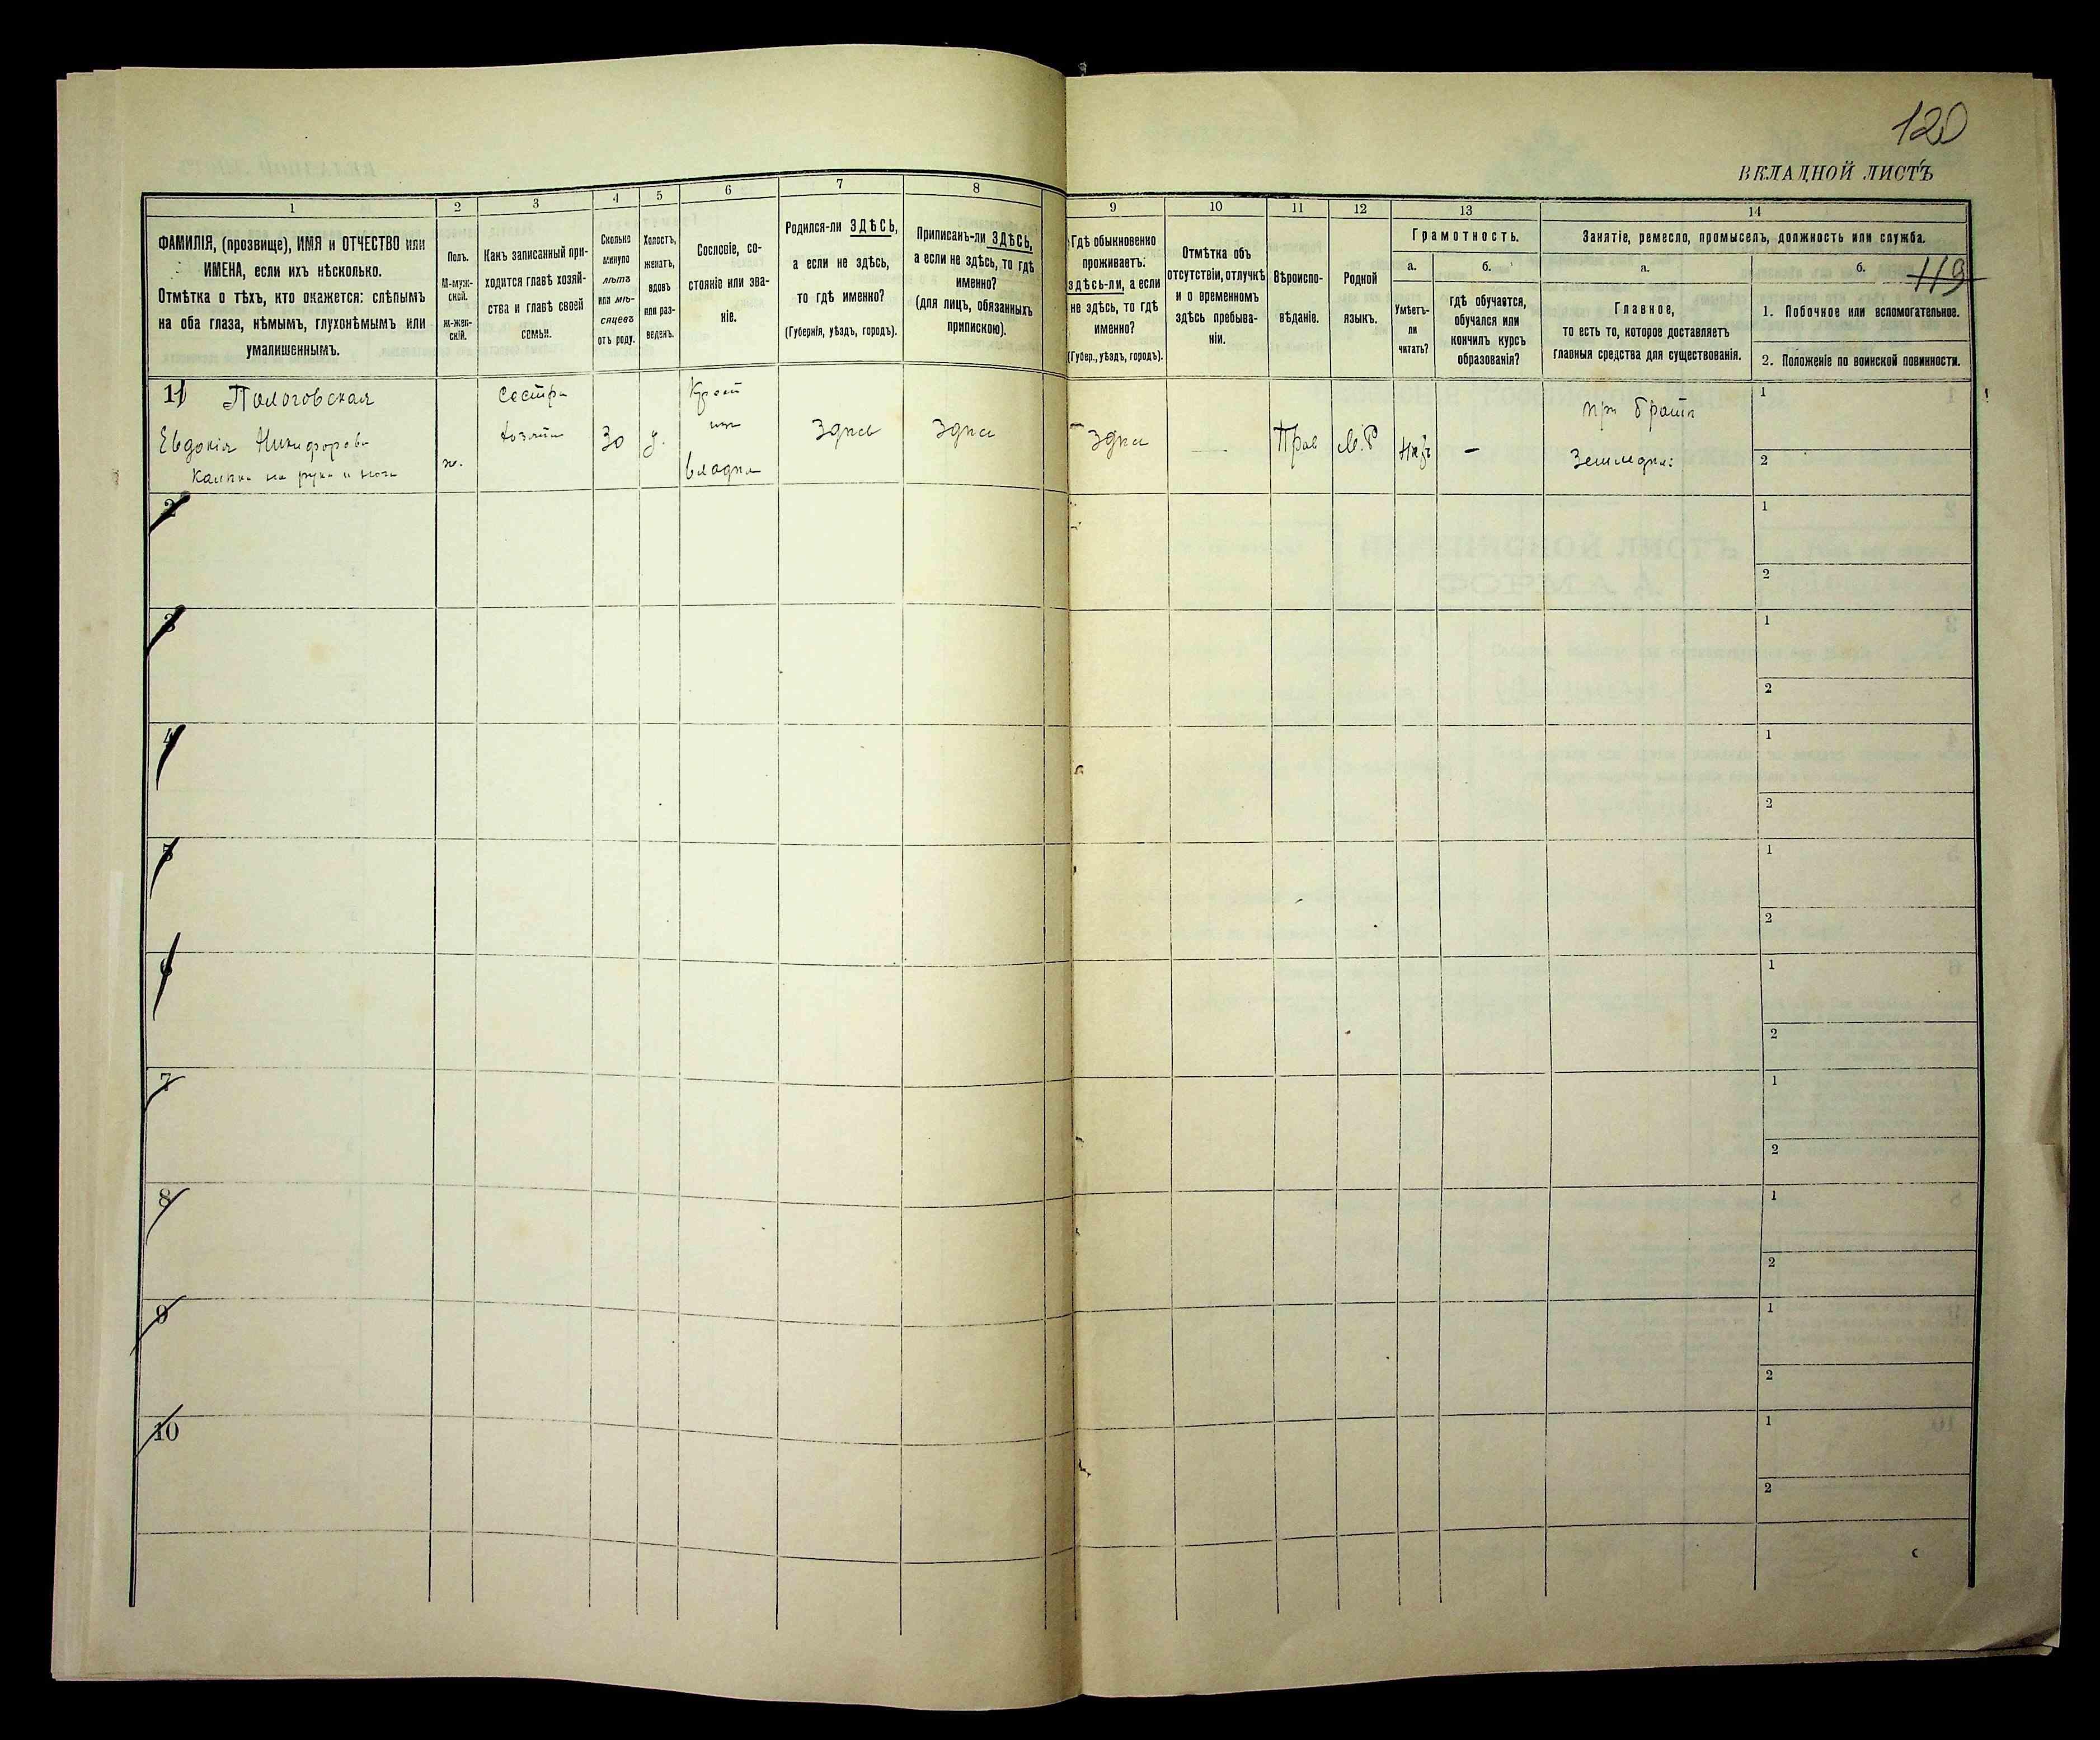 120
ВКЛАДНОЙ ЛИСТЪ
1
2
3
4
5
6
7
8
9
10
11
12
13
14
ФАМИЛІЯ, (прозвище), ИМЯ и ОТЧЕСТВО или
ИМЕНА, если ихъ нѣсколько.
Отмѣтка о тѣхъ, кто окажется: слѣпымъ
на оба глаза, нѣмымъ, глухонѣмымъ или
умалишеннымъ.
Полъ.
М-муж-
ской.
ж-жен-
скій.
Какъ записанный при-
ходится главѣ хозяй-
ства и главѣ своей
семьи.
Сколько
минуло
лѣтъ
или мѣ-
сяцевъ
отъ роду.
Холостъ,
женатъ,
вдовъ
или раз-
веденъ.
Сословіе, со-
стояніе или зва-
ніе.
Родился-ли ЗДѢСЬ,
а если не здѣсь,
то гдѣ именно?
(Губернія, уѣздъ, городъ).
Приписанъ-ли ЗДѢСЬ,
а если не здѣсь, то гдѣ
именно?
(для лицъ, обязанныхъ
припискою).
Гдѣ обыкновенно
проживаетъ:
здѣсь-ли, а если
не здѣсь, то гдѣ
именно?
(Губер., уѣздъ, городъ).
Отмѣтка объ
отсутствіи, отлучкѣ
и о временномъ
здѣсь пребыва-
ніи.
Вѣроиспо-
вѣданіе.
Родной
языкъ.
Грамотность.
а.
Умѣетъ-
ли
читать?
б.
гдѣ обучается,
обучался или
кончилъ курсъ
образованія?
Занятіе, ремесло, промыселъ, должность или служба.
а.
Главное,
то есть то, которое доставляетъ
главныя средства для существованія.
б.
119
1. Побочное или вспомогательное.
2. Положеніе по воинской повинности.
11 Пологовская
Евдокія Никифорова
ж.
Сестра
хозяина
30
д.
Крест
изъ
владѣл
Здѣсь
Здѣсь
Здѣсь
—
Прав
М.Р
—
при братѣ
Земледѣл:
1
2
2
1
2
3
1
2
4
1
2
5
1
2
6
1
2
7
1
2
8
1
2
9
1
2
10
1
2